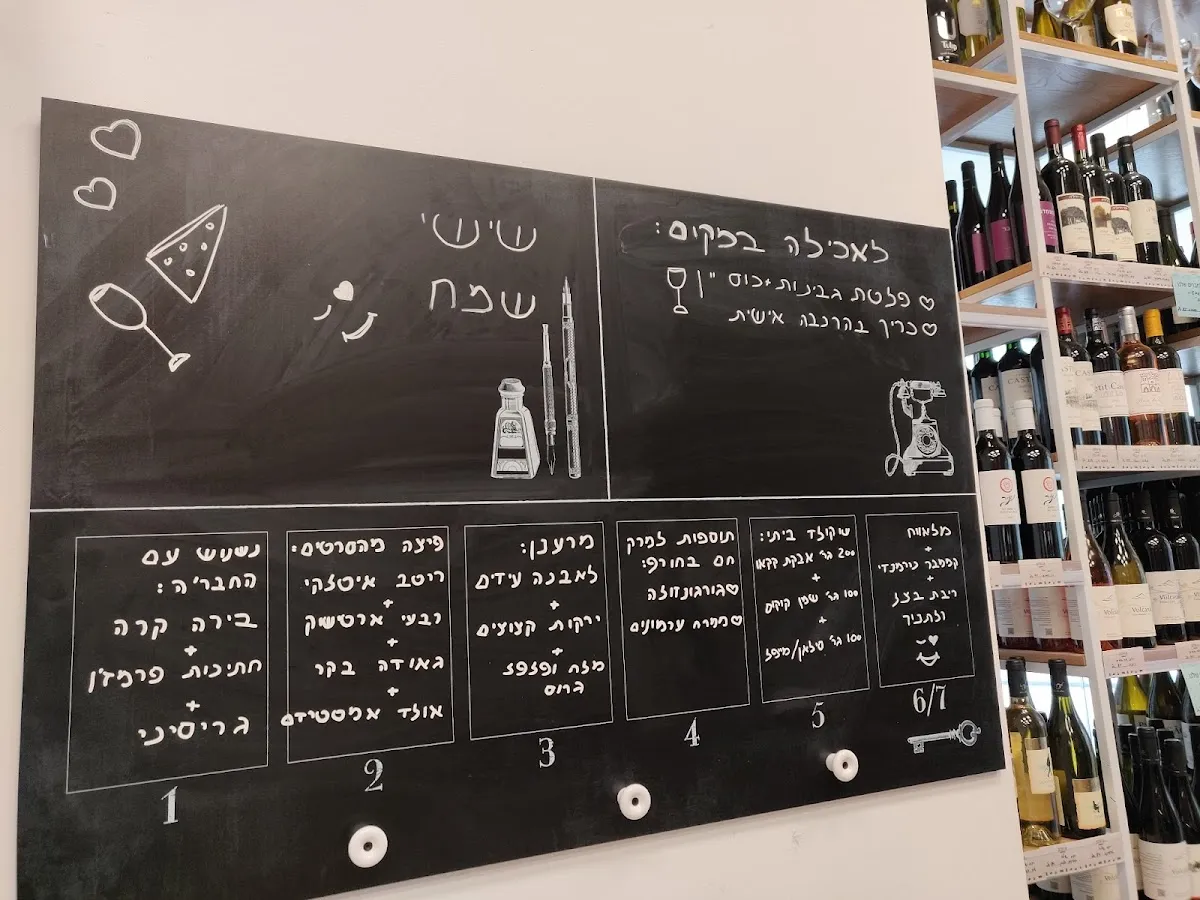 שישי
שמח
לאכילה במקום:
פלטת גבינות+כוס יין
כריך בהרכבה אישית
נשנוש עם
החבר'ה:
בירה קרה
+
חתיכות פרמז'ן
+
גריסיני
1
פיצה מהסרטים:
רוטב איטלקי
+
רבעי ארטישוק
+
גאודה בקר
+
אולד אמסטרדם
2
מרענן:
לאבנה עידים
+
ירקות קצוצים
+
מלח ופלפל
גרוס
3
תוספות למרק
חם בחורף:
גורגונזולה
ממרח ערמונים
4
שוקולד ביתי:
200 גר' אבקת קקאו
+
100 גר' שמן קוקוס
+
100 גר' סילאן/מייפל
5
מלאווח
+
קממבר נורמנדי
+
ריבת בצל
ולתנור
6/7
Tulip